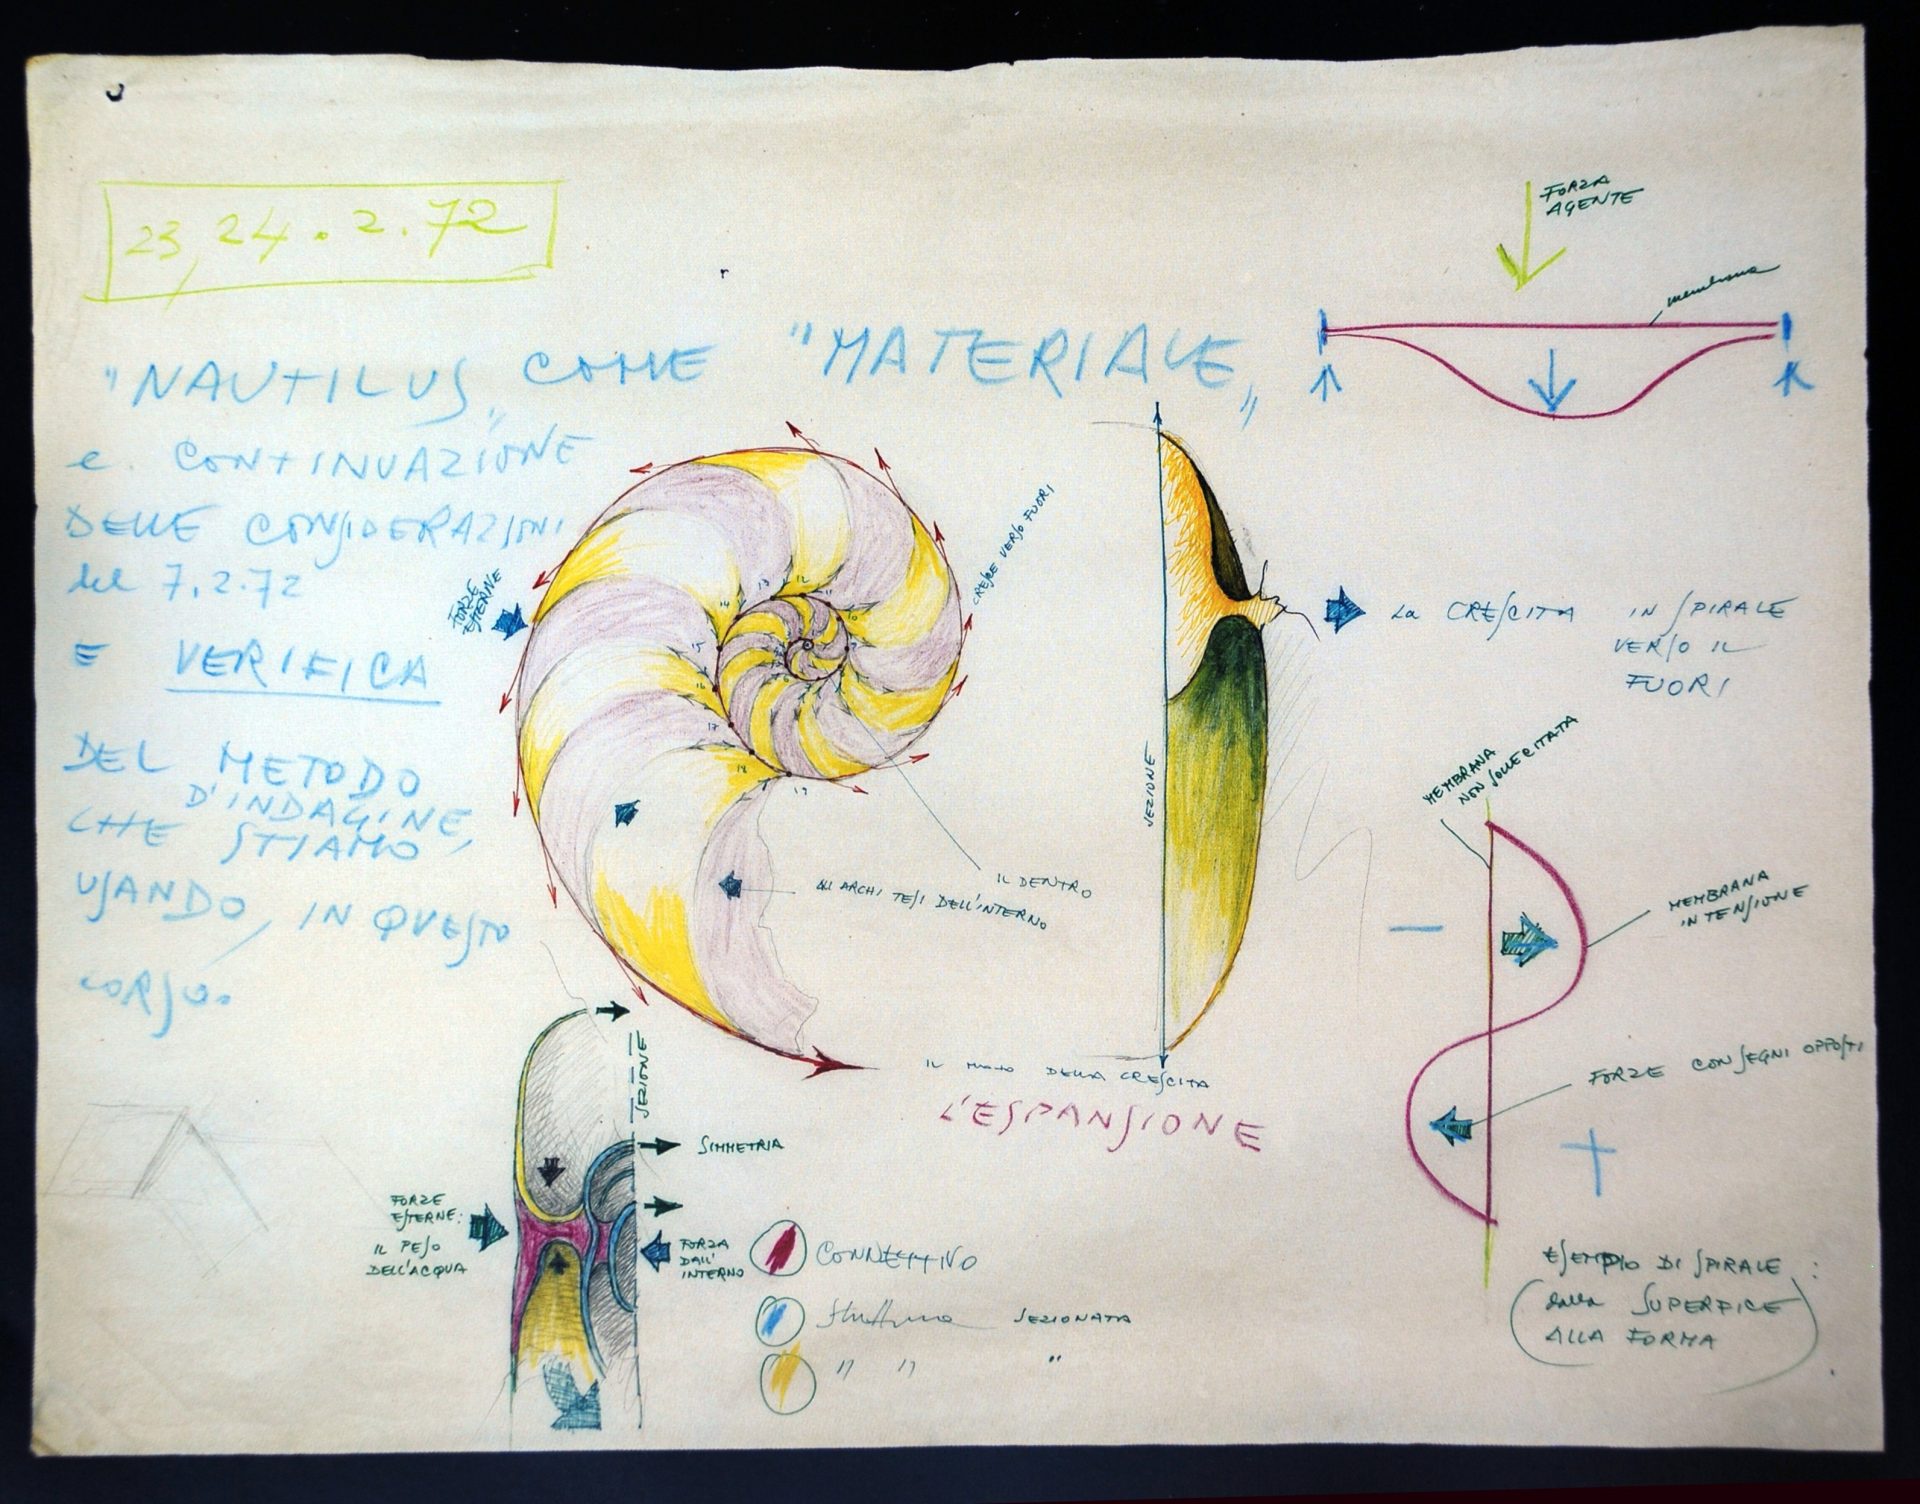 23, 24.2.72
"NAUTILUS„ COME "MATERIALE„
e CONTINUAZIONE
DELLE CONSIDERAZIONI
del 7.2.72
E VERIFICA
DEL METODO
D'INDAGINE,
CHE STIAMO
USANDO, IN QUESTO
CORSO.
FORZA
AGENTE
membrana
FORZE
ESTERNE
CRESCE VERSO FUORI
10
11
12
13
14
15
16
17
18
19
IL DENTRO
GLI ARCHI TESI DELL'INTERNO
SEZIONE
La CRESCITA IN SPIRALE
VERSO IL
FUORI
MEMBRANA
NON SOLLECITATA
MEMBRANA
IN TENSIONE
−
FORZE CON SEGNI OPPOSTI
+
IL MODO DELLA CRESCITA
L'ESPANSIONE
SEZIONE
SIMMETRIA
FORZE
ESTERNE:
IL PESO
DELL'ACQUA
FORZA
DALL'
INTERNO
CONNETTIVO
Struttura SEZIONATA
" " "
ESEMPIO DI SPIRALE:
dalla SUPERFICE
ALLA FORMA